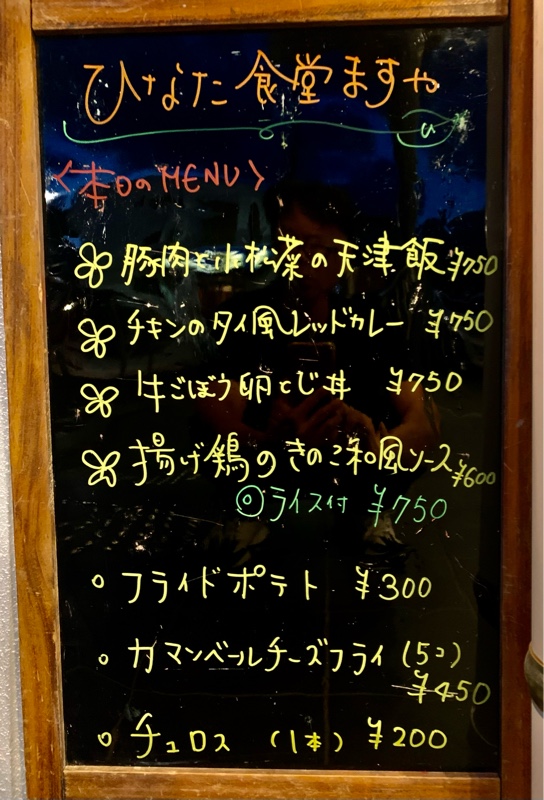 ひなた食堂ますや
〈本日のMENU〉
豚肉と小松菜の天津飯 ¥750
チキンのタイ風レッドカレー ¥750
牛ごぼう卵とじ丼 ¥750
揚げ鶏のきのこ和風ソース ¥600
◎ライス付 ¥750
フライドポテト ¥300
カマンベールチーズフライ(5コ)
¥450
チュロス (1本) ¥200